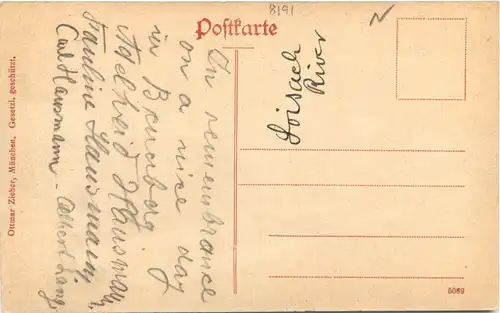 8191
Postkarte
In remembrance
on a nice day
in
Adelheid Hausmann
Pauline Hausmann
Carl Hausmann - Albert Lang
Loisach
River
Ottmar Zieher, München. Gesetzl. geschützt.